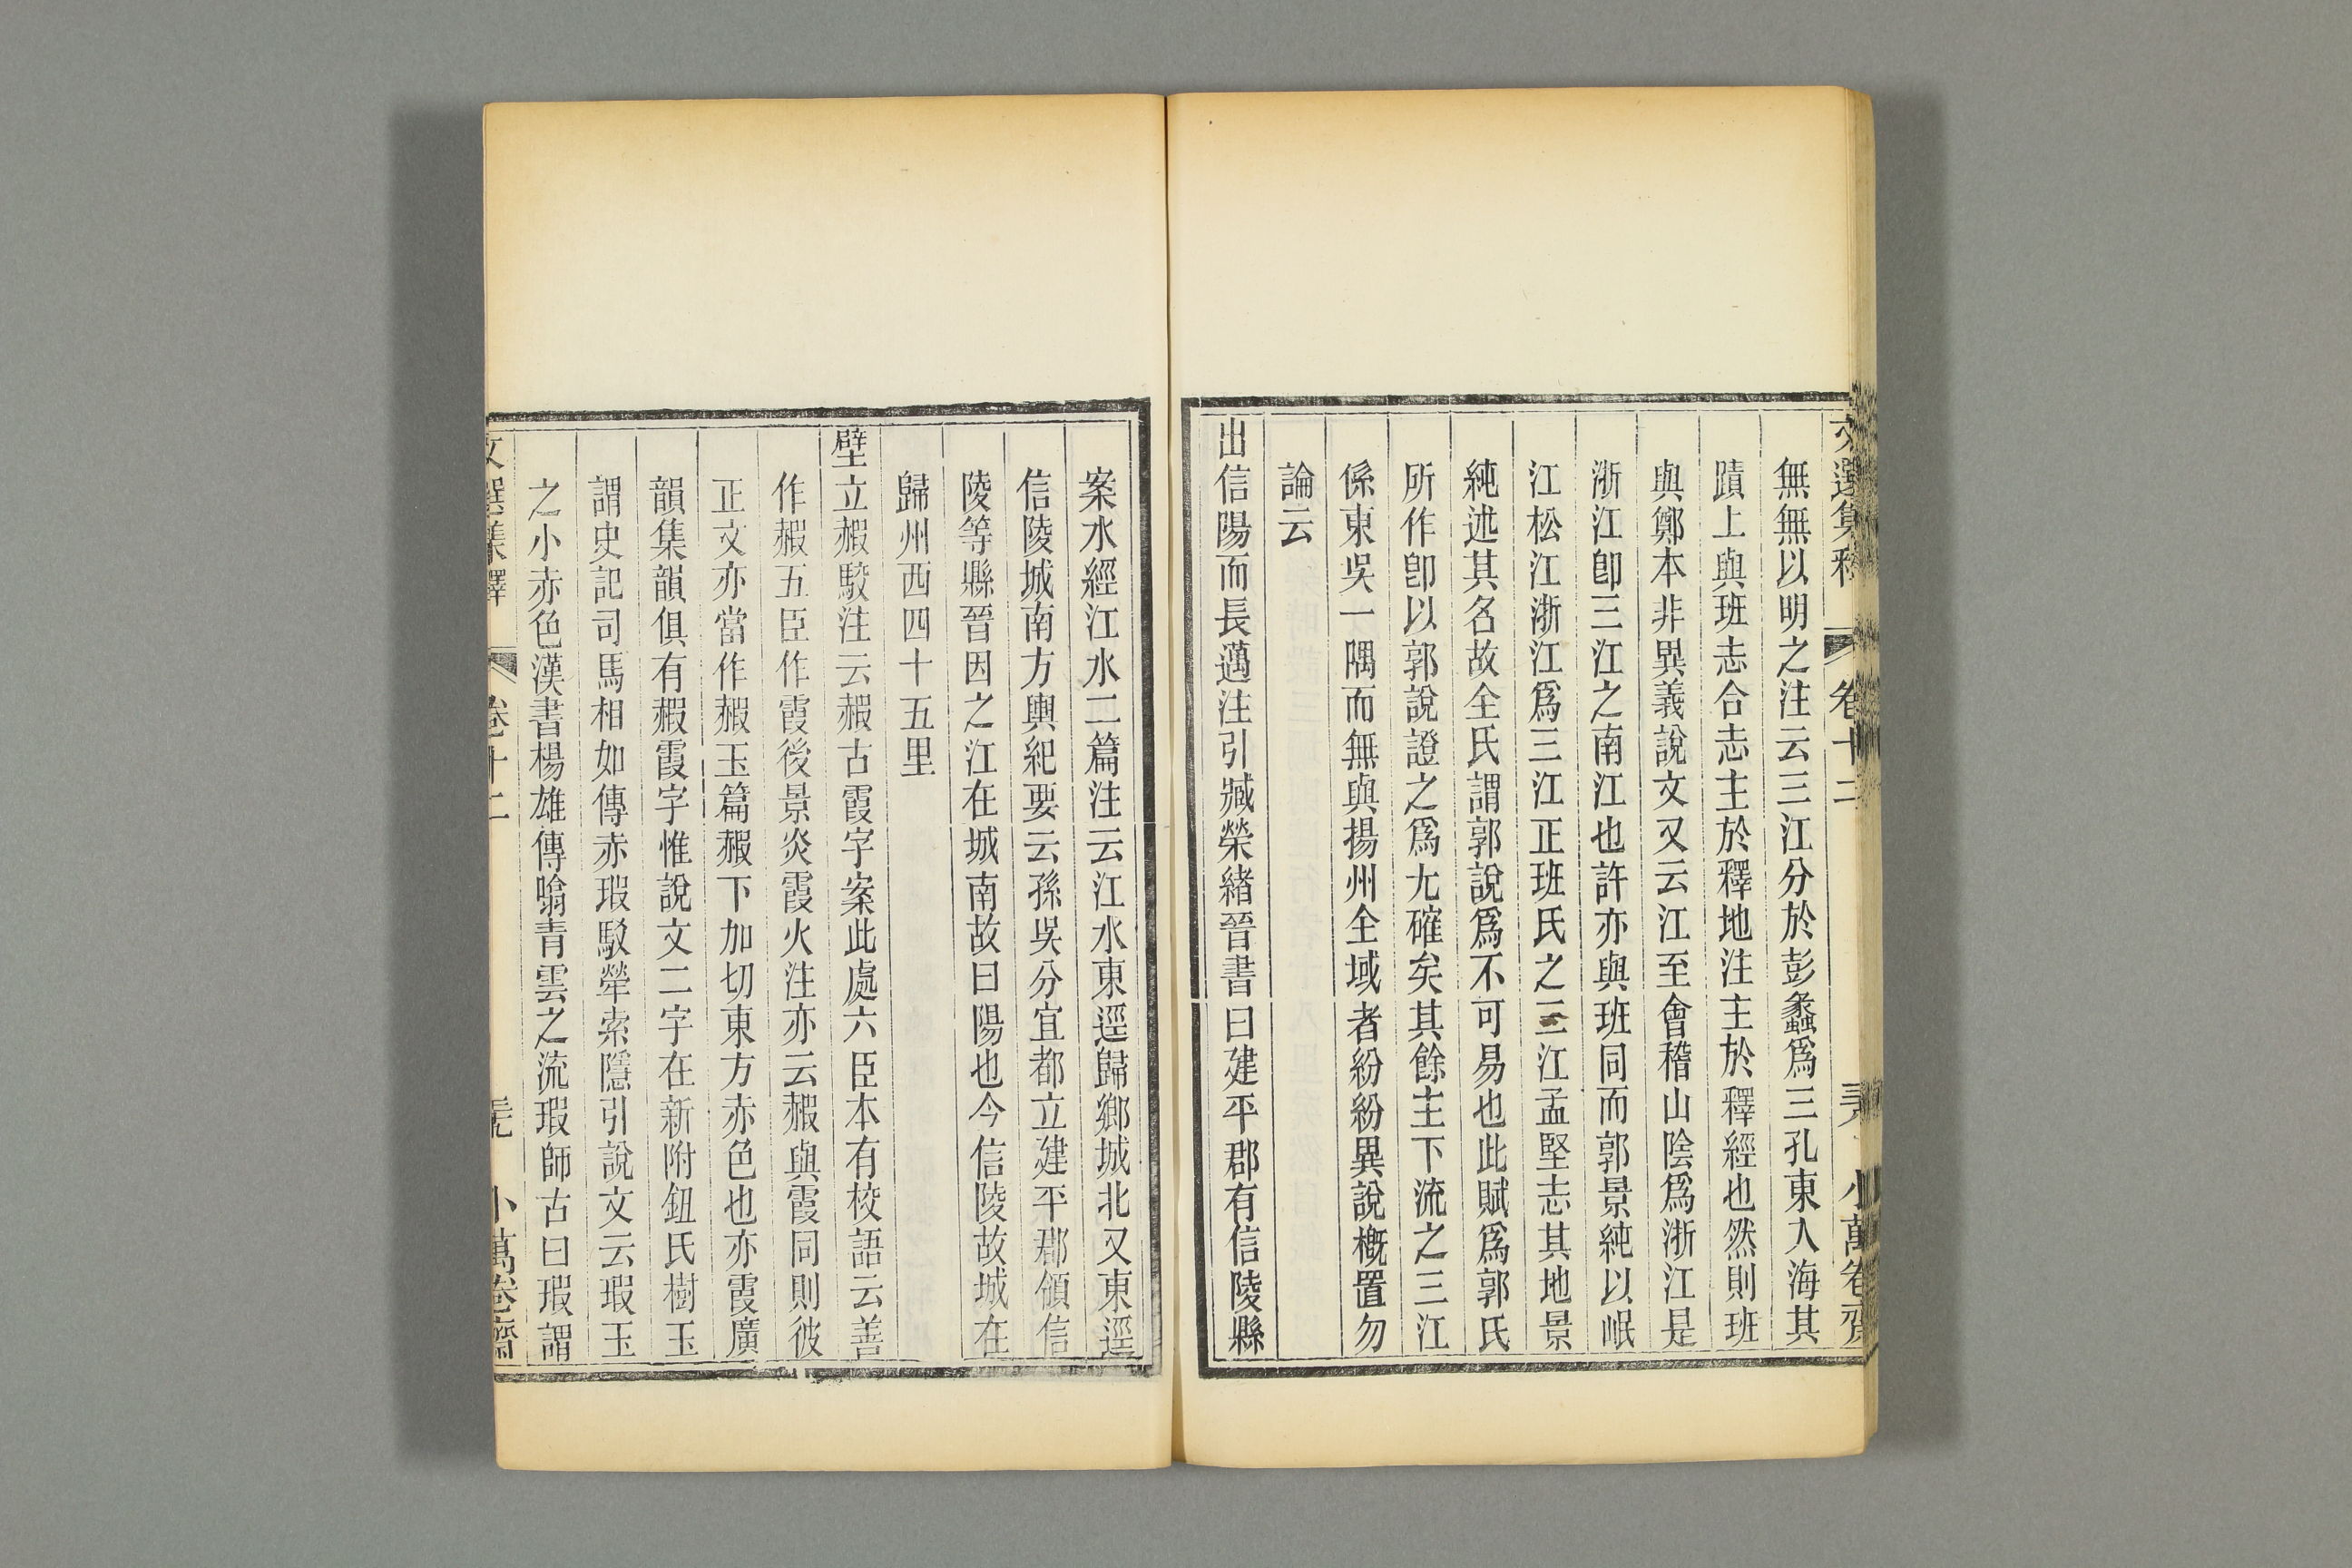 文選集釋 卷十二 小萬卷齋
無無以明之注云三江分於彭蠡爲三孔東入海其
蹟上與班志合志主於釋地注主於釋經也然則班
與鄭本非異義說文又云江至會稽山陰爲浙江是
浙江卽三江之南江也許亦與班同而郭景純以岷
江松江浙江爲三江正班氏之三江孟堅志其地景
純述其名故全氏謂郭說爲不可易也此賦爲郭氏
所作卽以郭說證之爲尤確矣其餘主下流之三江
係東吳一隅而無與揚州全域者紛紛異說槪置勿
論云
出信陽而長邁注引臧榮緒晉書曰建平郡有信陵縣
案水經江水二篇注云江水東逕歸鄉城北又東逕
信陵城南方輿紀要云孫吳分宜都立建平郡領信
陵等縣晉因之江在城南故曰陽也今信陵故城在
歸州西四十五里
壁立赮駮注云赮古霞字案此處六臣本有校語云善
作赮五臣作霞後景炎霞火注亦云赮與霞同則彼
正文亦當作赮玉篇赮下加切東方赤色也亦霞廣
韻集韻俱有赮霞字惟說文二字在新附鈕氏樹玉
謂史記司馬相如傳赤瑕駁犖索隱引說文云瑕玉
之小赤色漢書楊雄傳噏青雲之流瑕師古曰瑕謂
文選集釋 卷十二 小萬卷齋